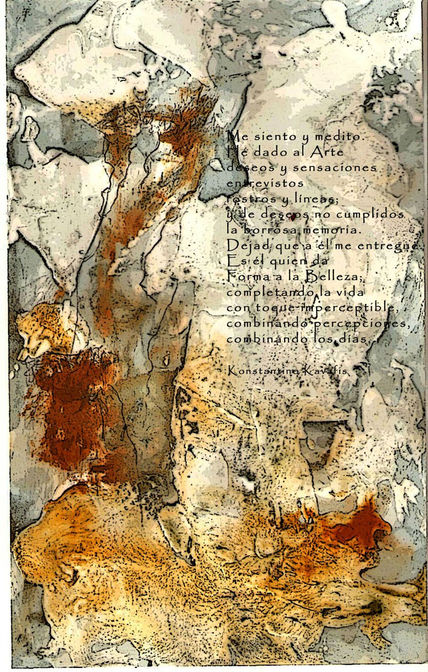 Me siento y medito.
He dado al Arte
deseos y sensaciones
entrevistos
rostros y líneas;
y de deseos no cumplidos
la borrosa memoria.
Dejad que a él me entregue.
Es él quien da
Forma a la Belleza;
completando la vida
con toque imperceptible,
combinando percepciones,
combinando los días.
Konstantino Kavafis